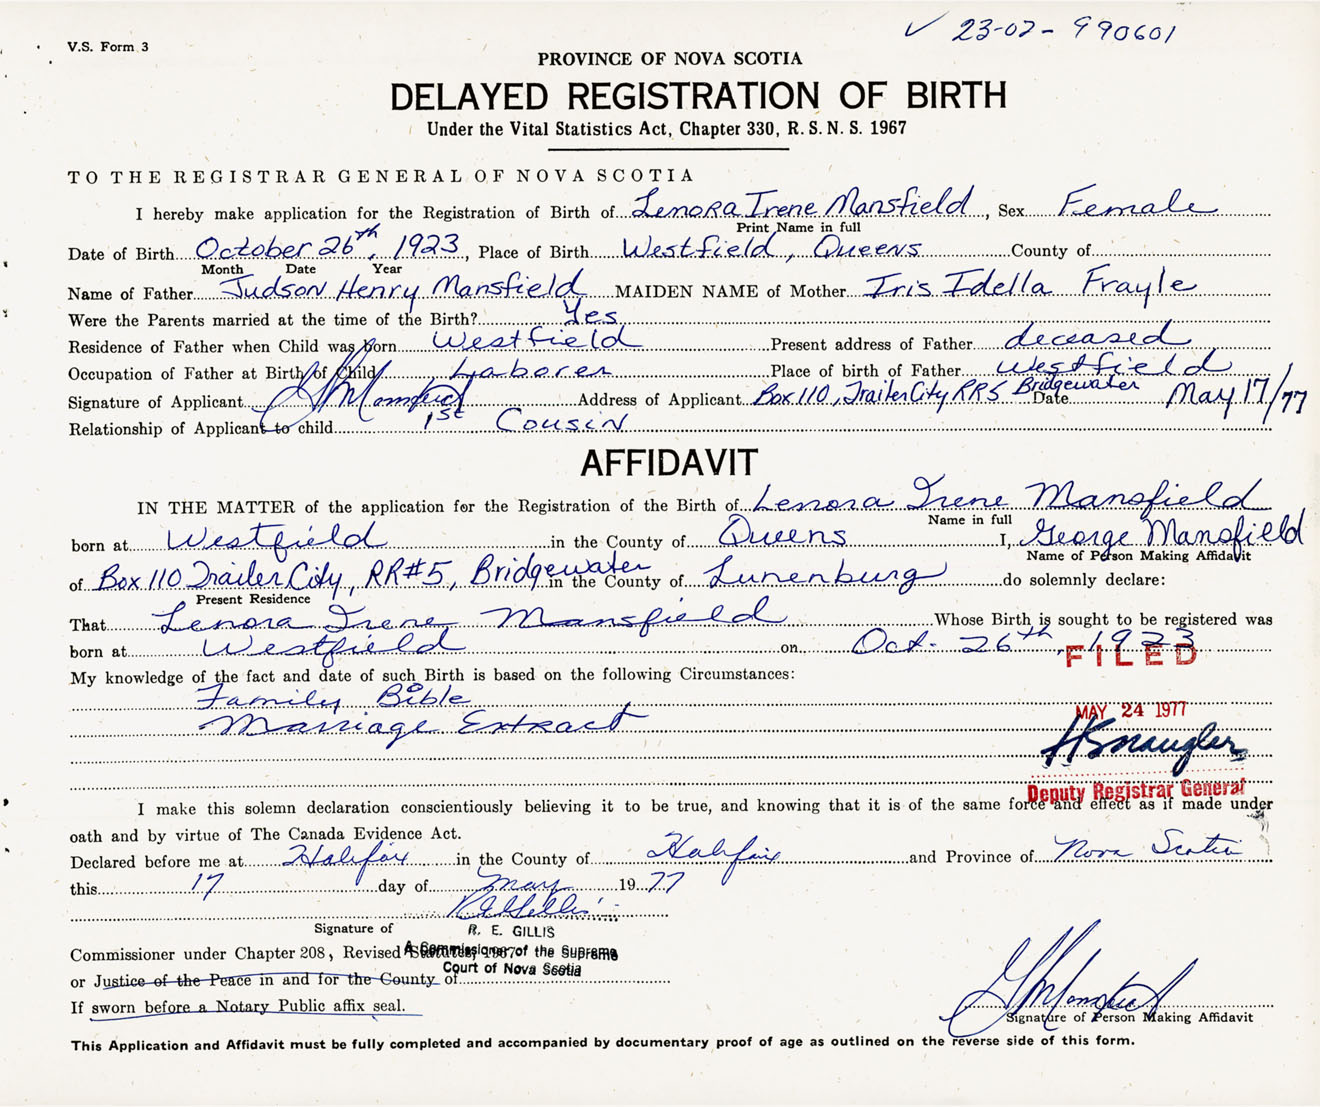 ✓ 23-02-990601
V.S. Form 3
PROVINCE OF NOVA SCOTIA
DELAYED REGISTRATION OF BIRTH
Under the Vital Statistics Act, Chapter 330, R.S.N.S. 1967
TO THE REGISTRAR GENERAL OF NOVA SCOTIA
I hereby make application for the Registration of Birth of Lenora Irene Mansfield, Sex Female
Print Name in full
Date of Birth October 26th, 1923, Place of Birth Westfield, Queens County of
Month Date Year
Name of Father Judson Henry Mansfield MAIDEN NAME of Mother Iris Idella Frayle
Were the Parents married at the time of the Birth? Yes
Residence of Father when Child was born Westfield Present address of Father deceased
Occupation of Father at Birth of Child Laborer Place of birth of Father Westfield
Signature of Applicant G M Mansfield Address of Applicant Box 110, Trailer City RR5 Bridgewater Date May 17/77
Relationship of Applicant to child 1st Cousin
AFFIDAVIT
IN THE MATTER of the application for the Registration of the Birth of Lenora Irene Mansfield
Name in full
born at Westfield in the County of Queens I, George Mansfield
Name of Person Making Affidavit
of Box 110 Trailer City, RR#5, Bridgewater in the County of Lunenburg do solemnly declare:
Present Residence
That Lenora Irene Mansfield Whose Birth is sought to be registered was
born at Westfield on Oct. 26th, 1923
FILED
My knowledge of the fact and date of such Birth is based on the following Circumstances:
Family Bible
Marriage Extract
MAY 24 1977
HSmaugler
Deputy Registrar General
I make this solemn declaration conscientiously believing it to be true, and knowing that it is of the same force and effect as if made under
oath and by virtue of The Canada Evidence Act.
Declared before me at Halifax in the County of Halifax and Province of Nova Scotia
this 17 day of May 1977
R E Gillis
Signature of R. E. GILLIS
Commissioner under Chapter 208, Revised Statutes, 1967
A Commissioner of the Supreme
Court of Nova Scotia
or Justice of the Peace in and for the County of
If sworn before a Notary Public affix seal.
G M Mansfield
Signature of Person Making Affidavit
This Application and Affidavit must be fully completed and accompanied by documentary proof of age as outlined on the reverse side of this form.